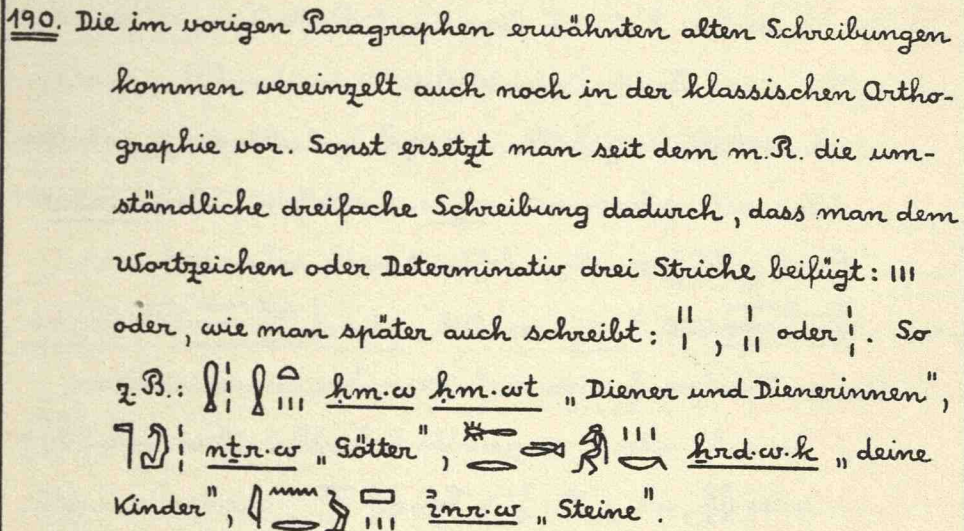 190. Die im vorigen Paragraphen erwähnten alten Schreibungen
kommen vereinzelt auch noch in der klassischen Ortho-
graphie vor. Sonst ersetzt man seit dem m.R. die um-
ständliche dreifache Schreibung dadurch, dass man dem
Wortzeichen oder Determinativ drei Striche beifügt: 𓏥
oder, wie man später auch schreibt: , oder . So
z.B.: ḥm.w ḥm.wt „Diener und Dienerinnen",
nṯr.w „Götter", ẖrd.w.k „deine
Kinder", inr.w „Steine".